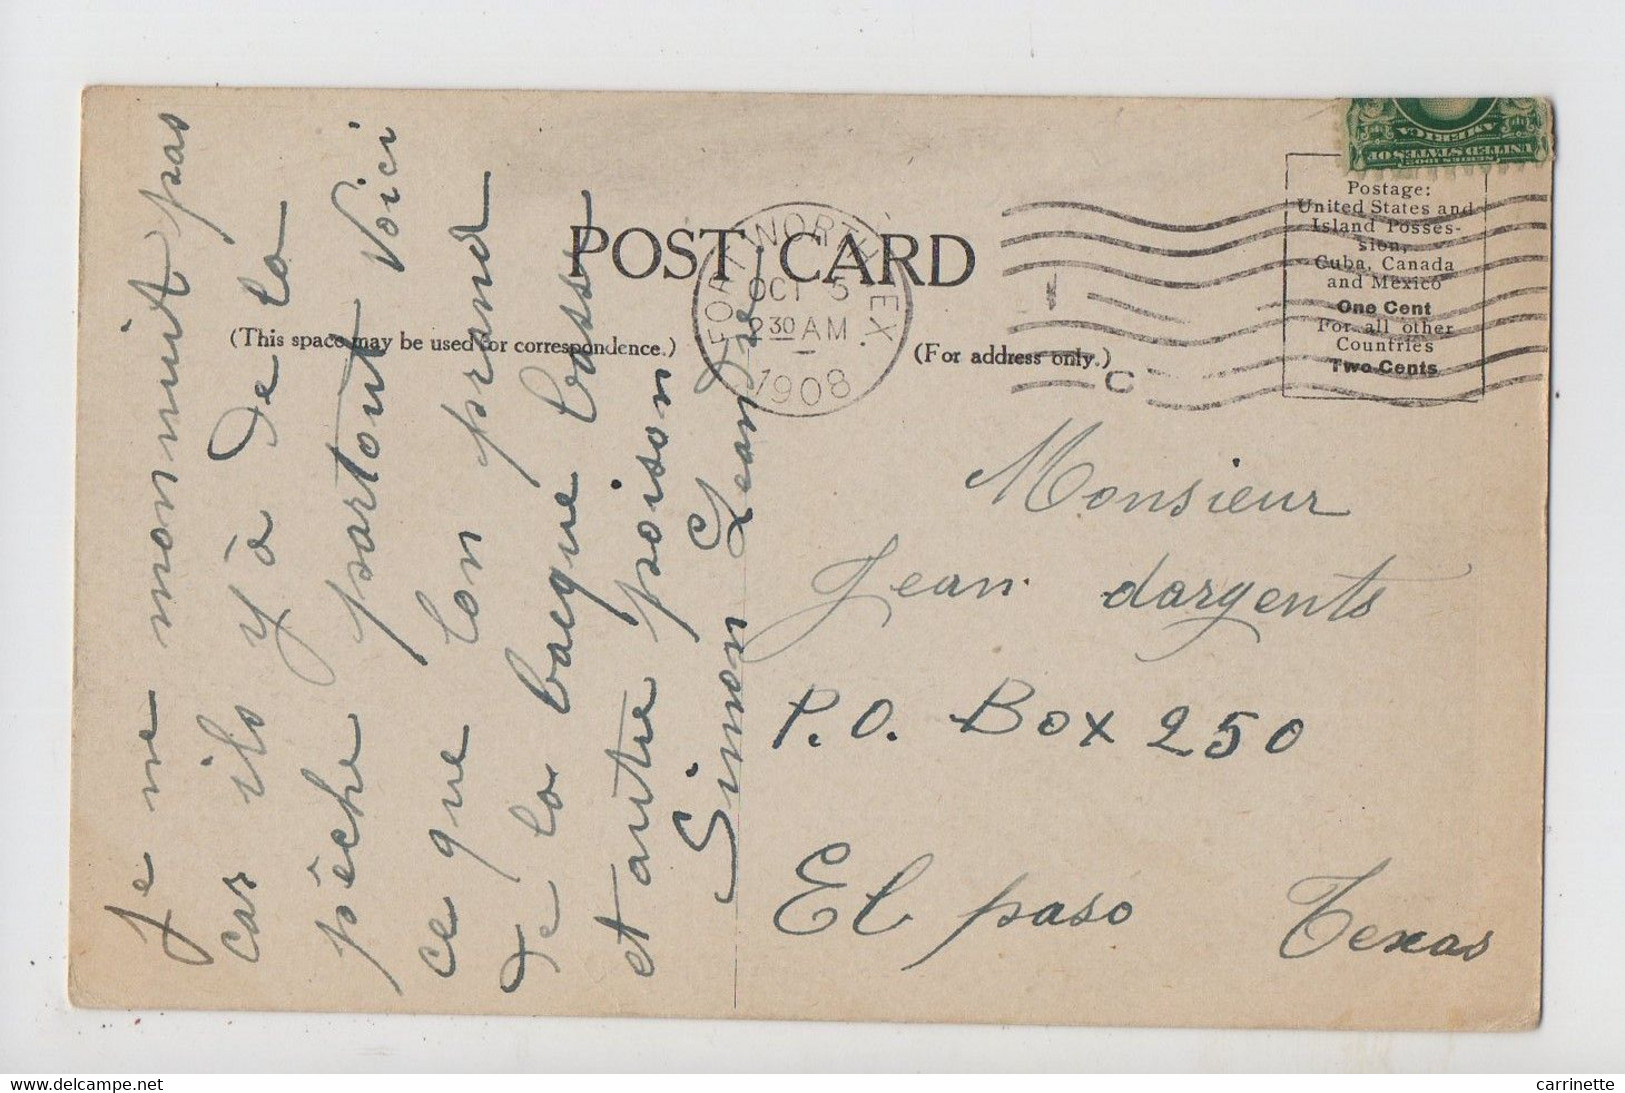 Je ne m'onnuit pas
car ils y'à de la
pêche partout Voici
ce que lon prand
de la bacque basse
et autre poison
Simon Leandre
POST CARD
(This space may be used for correspondence.)
(For address only.)
FORT WORTH, TEX.
OCT 5
2 30 AM
1908
SERIES 1902
UNITED STATES OF
AMERICA
Postage:
United States and
Island Posses-
sion,
Cuba, Canada
and Mexico
One Cent
For all other
Countries
Two Cents
C
Monsieur
Jean dargents
P.O. Box 250
El paso Texas
www.delcampe.net
carrinette